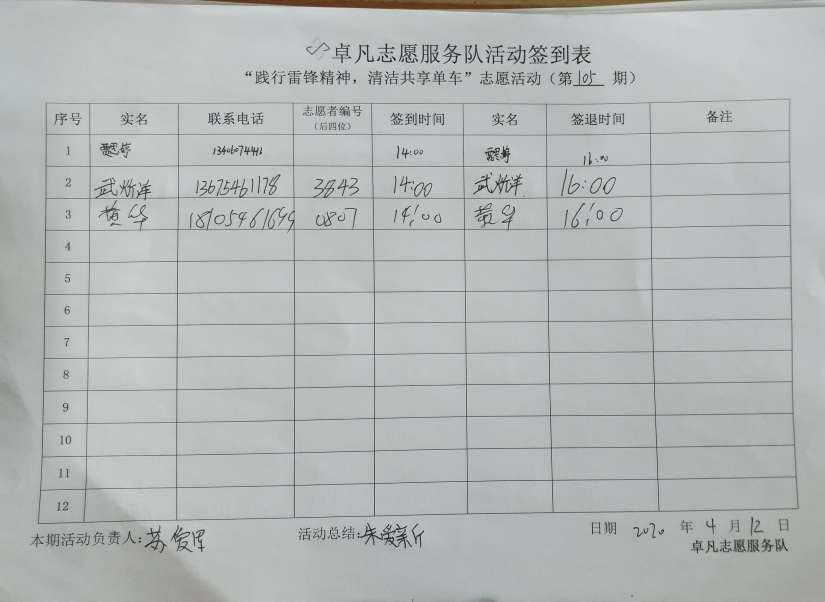 卓凡志愿服务队活动签到表
“践行雷锋精神，清洁共享单车”志愿活动（第 105 期）
序号 实名 联系电话 志愿者编号（后四位） 签到时间 实名 签退时间 备注
1 14:00 16:00
2 武 洋 13675461178 3843 14:00 武 洋 16:00
3 黄华 18105461649 0807 14:00 黄华 16:00
4
5
6
7
8
9
10
11
12
本期活动负责人：苏 活动总结：朱爱 日期 2020 年 4 月 12 日
卓凡志愿服务队